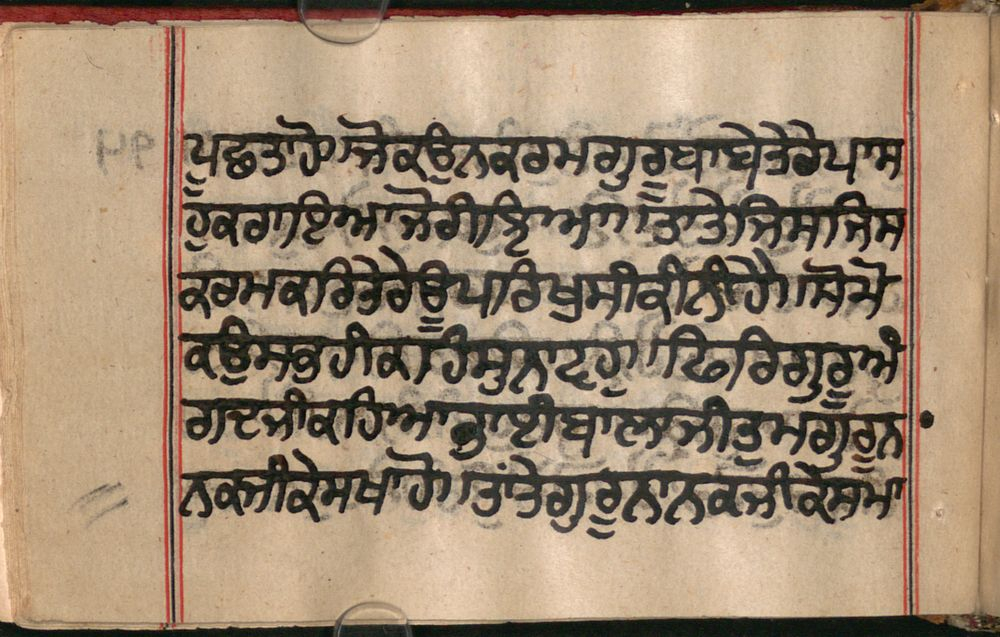 ਪੂਛਤਾਹੋ।ਜੋਕਉਨਕਰਮਗੁਰੂਬਾਬੇਤੇਰੇਪਾਸ
ਹੁਕਰਾਇਆਜੋਗੀ।ਲਿਆ।ਤਾਤੇ।ਜਿਸ।ਜਿਸ
ਕਰਮਕਰਿਤੇਰੇਊਪਰਿਖੁਸੀਕੀਨੀਹੈ।ਸੋਮੋ
ਕਉਸਭਹੀਕਹਿਸੁਨਾਵਹੁ।ਫਿਰਿਗੁਰੂਅੰ
ਗਦਜੀਕਹਿਆਭਾਈਬਾਲਾਜੀਤੁਮਗੁਰੂਨ
ਨਕਜੀਕੇਸਖਾਹੋ।ਤਾਂਤੇਗੁਰੂਨਾਨਕਜੀਕੈਸਮਾ